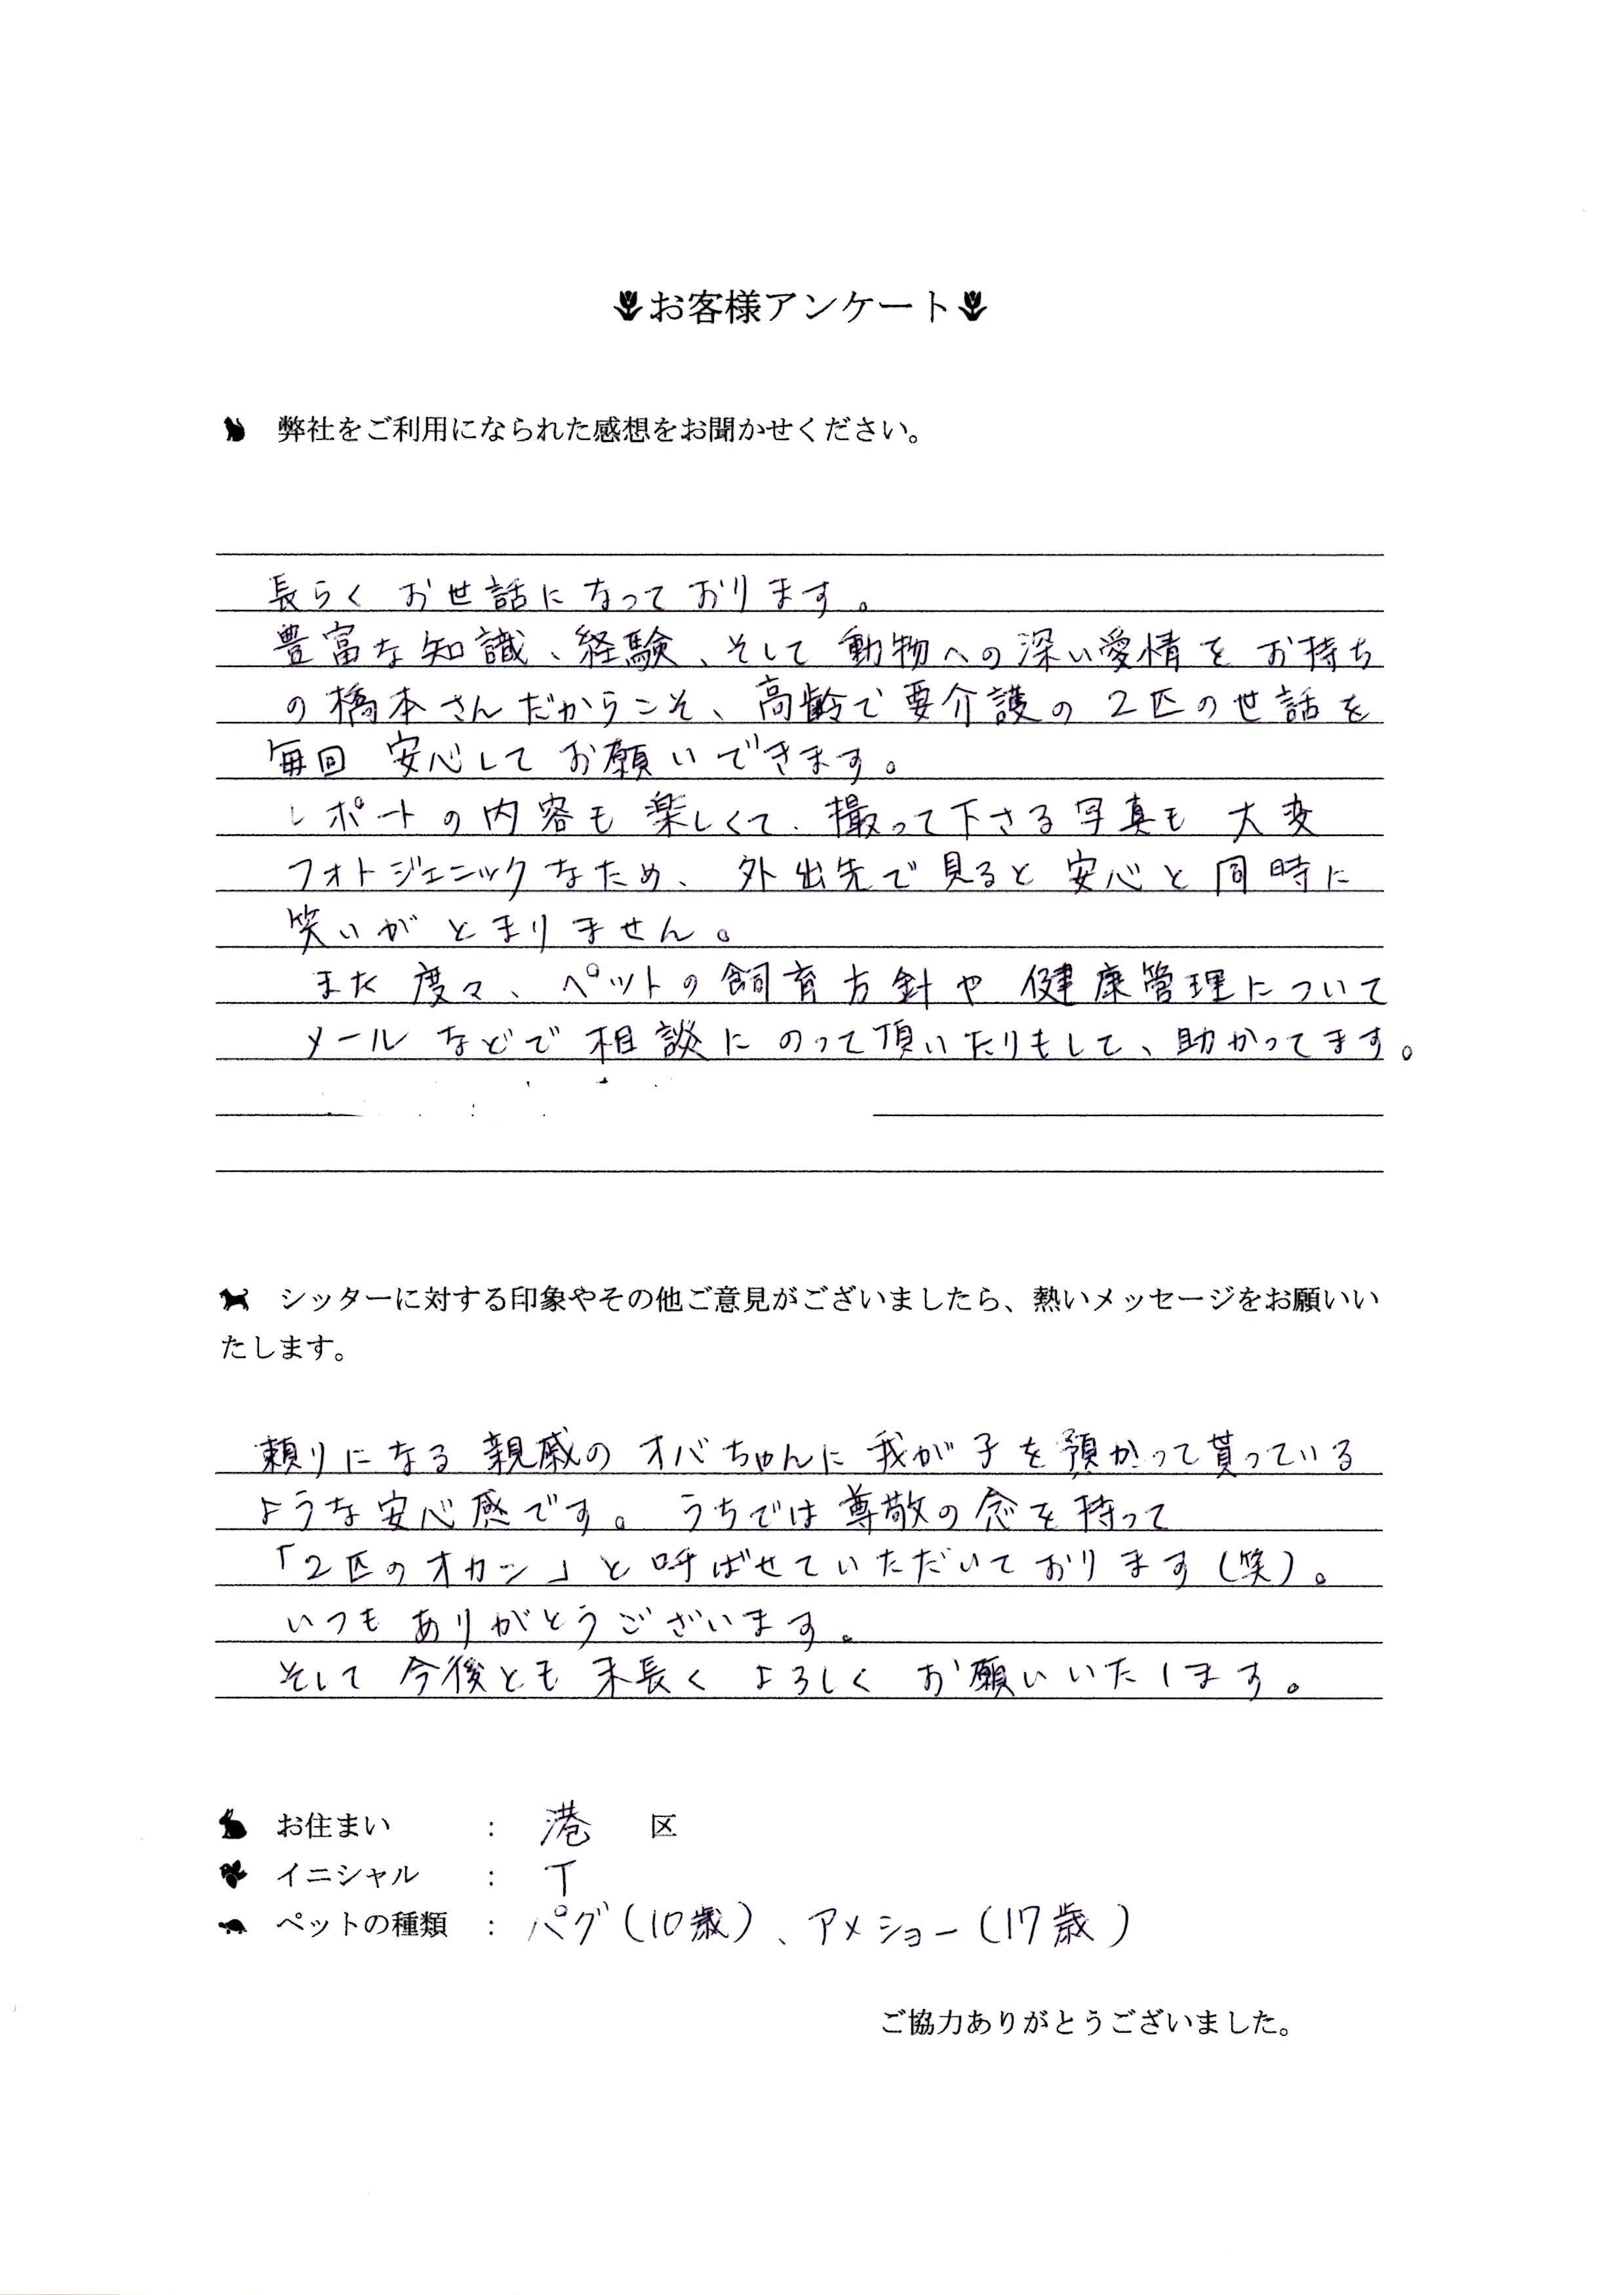 お客様アンケート
弊社をご利用になられた感想をお聞かせください。
長らくお世話になっております。
豊富な知識、経験、そして動物への深い愛情をお持ち
の橋本さんだからこそ、高齢で要介護の2匹の世話を
毎回安心してお願いできます。
レポートの内容も楽しくて、撮って下さる写真も大変
フォトジェニックなため、外出先で見ると安心と同時に
笑いがとまりません。
また度々、ペットの飼育方針や健康管理について
メールなどで相談にのって頂いたりもして、助かってます。
シッターに対する印象やその他ご意見がございましたら、熱いメッセージをお願いい
たします。
頼りになる親戚のオバちゃんに我が子を預かって貰っている
ような安心感です。うちでは尊敬の念を持って
「2匹のオカン」と呼ばせていただいております(笑)。
いつもありがとうございます。
そして今後とも末長くよろしくお願いいたします。
お住まい : 港 区
イニシャル : T
ペットの種類 : パグ(10歳)、アメショー(17歳)
ご協力ありがとうございました。